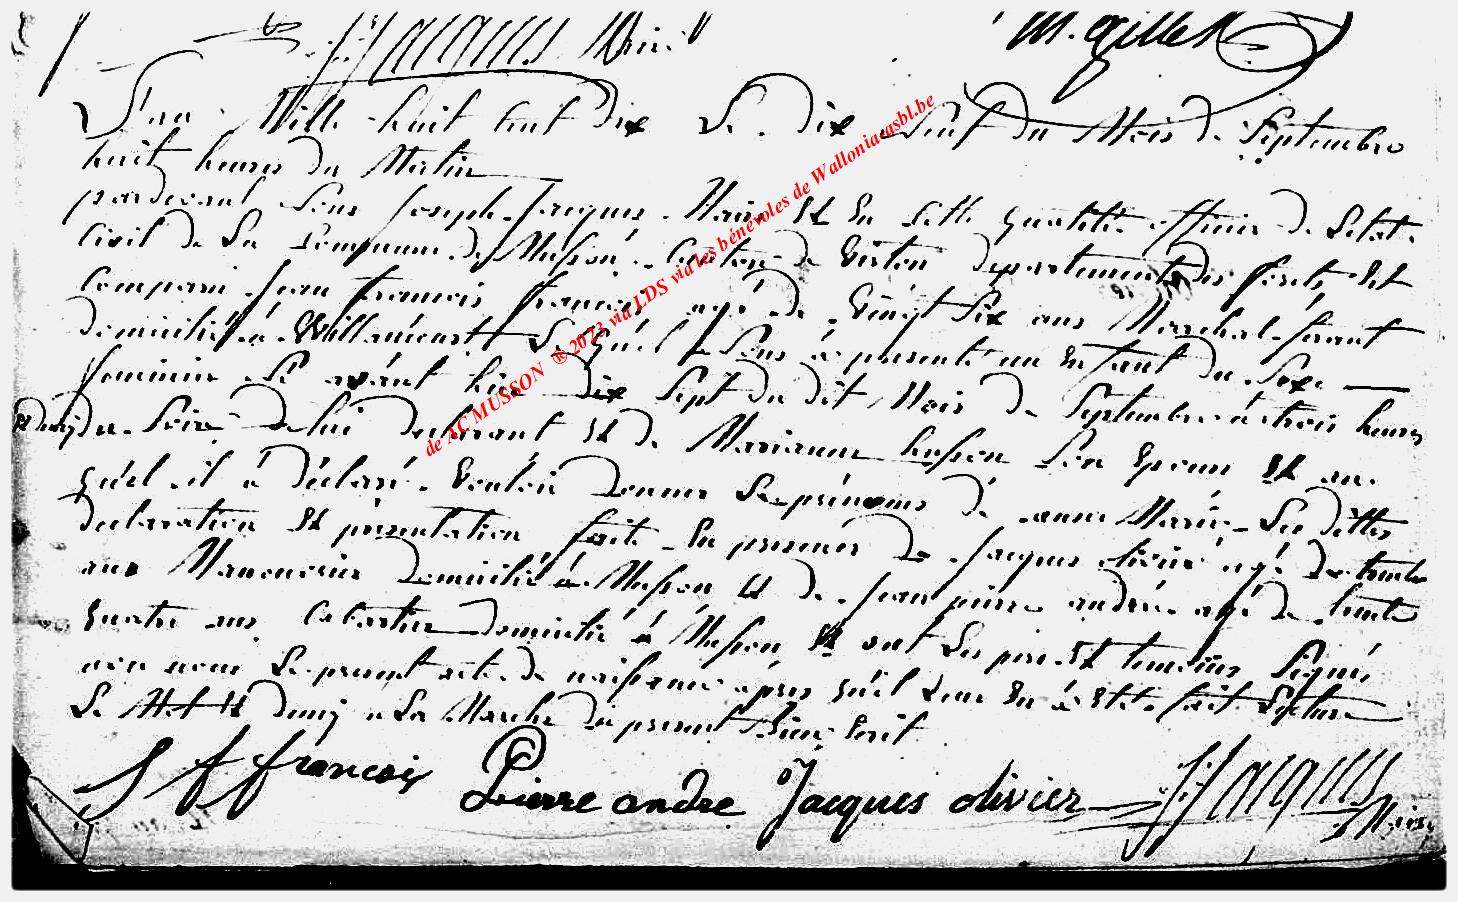 J. Jacques Maire
M. Gillet
L'an Mille huit Cent dix Le dix Sept du Mois de Septembre
huit heures du Matin
pardevant Nous Joseph Jacques Maire Et En Cette qualité officier de Létat
Civil de La Commune de Musson Canton de Virton departement des forêts Est
Comparu Jean francois francois agé de Vingt Six ans Marchal ferant
domicilié à Willancourt Lequel Nous à presenté un Enfant du Sexe
feminin né avant hier dix Sept du dit Mois de Septembre à trois heures
Et demy du Soire de lui declarant Et de Marianne husson Son Epouse Et au
quel il à déclaré Vouloir donner Les prénoms de anne Marie Les dittes
declaration Et présentation faite En presence de Jacques olivié agé de trente
ans Manouvrier domicilié à Musson Et de Jean pierre andré agé de trente
quatre ans Cabartier domicilié à Musson Et ont Les pere Et temoins Signé
avec nous Le present acte de naissance après qu'il Leur En à Eté fait Lecture
Le Mot Et demy a La Marche du present Bien Ecrit
J f francois Pierre andre Jacques olivier J. Jacques
Maire
de AC MUSSON ® 2023 via LDS via les bénévoles de Wallonia-asbl.be